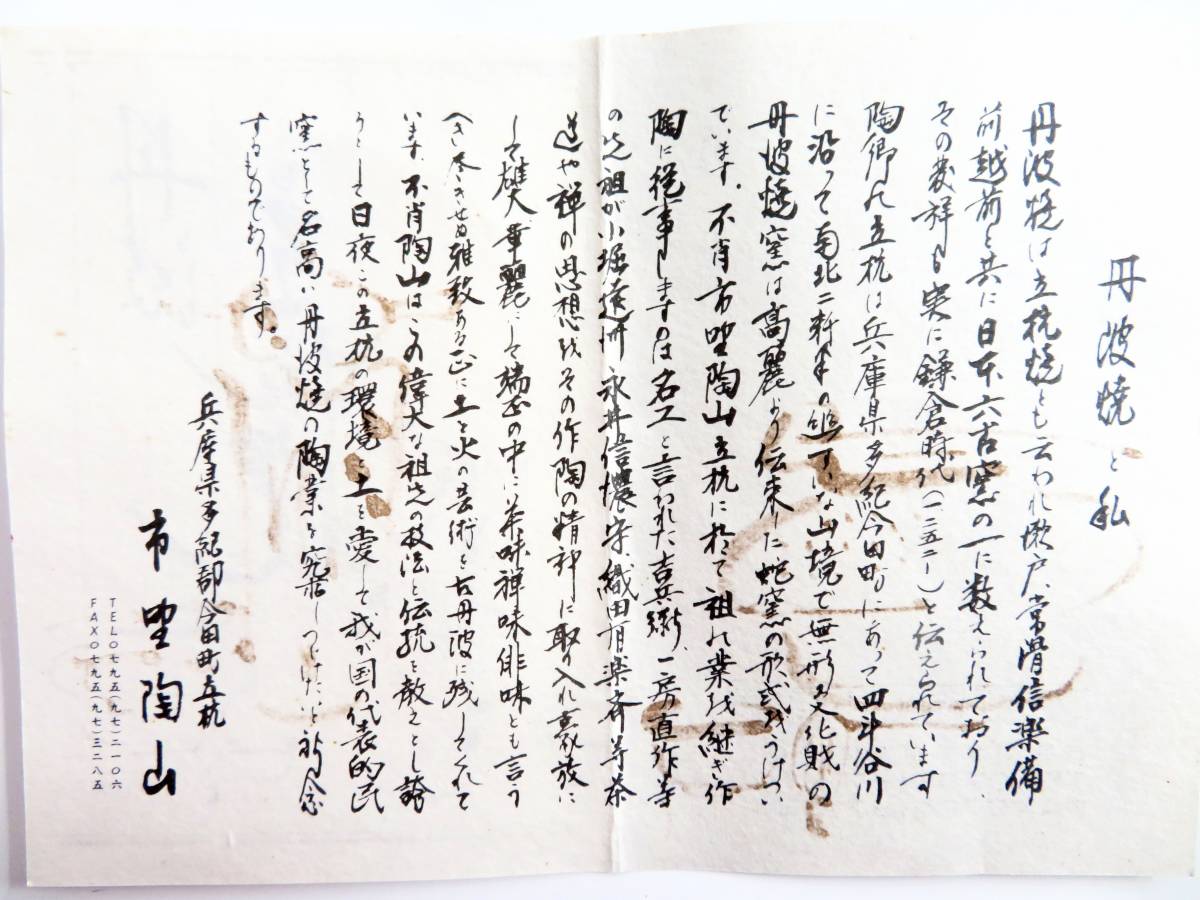 丹波焼と私
丹波焼は立杭焼とも云われ瀬戸、常滑信楽備
前越前と共に日本六古窯の一に数えられており、
その発祥も実に鎌倉時代(一二五二ー)と伝えられています
陶郷の立杭は兵庫県多紀今田町にあって四斗谷川
に沿って南北二軒の山境で無形文化財の
丹波焼窯は高麗より伝来した蛇窯の形式をうけつい
でいます。不肖市野陶山立杭に於て祖の業を継ぎ作
陶に従事しますのは名工と言われた吉兵衛、一房直作等
の先祖が小堀遠州永井信濃守織田有楽斉等茶
道や禅の思想をその作陶の精神に取り入れ豪放に
して雄大華麗にして端正の中に茶味禅味俳味とも言う
べき尽きせぬ雅致ある正に土と火の芸術と古丹波に残してくれて
います、不肖陶山はこの偉大な祖先の技法と伝統を教えとし誇
りとして日夜この立杭の環境と土を愛して我が国の代表的民
窯として名高い丹波焼の陶業を究めつづけたいと祈念
するものであります。
兵庫県多紀郡今田町立杭
市野陶山
TEL〇七九五(九七)二一〇六
FAX〇七九五(九七)三二八五